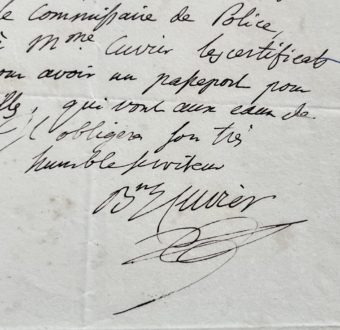 le Commissaire de Police,
à Mme Cuvier les certificats
our avoir un passeport pour
ille, qui vont aux eaux de
Il obligera son très
humble serviteur
Bon Cuvier